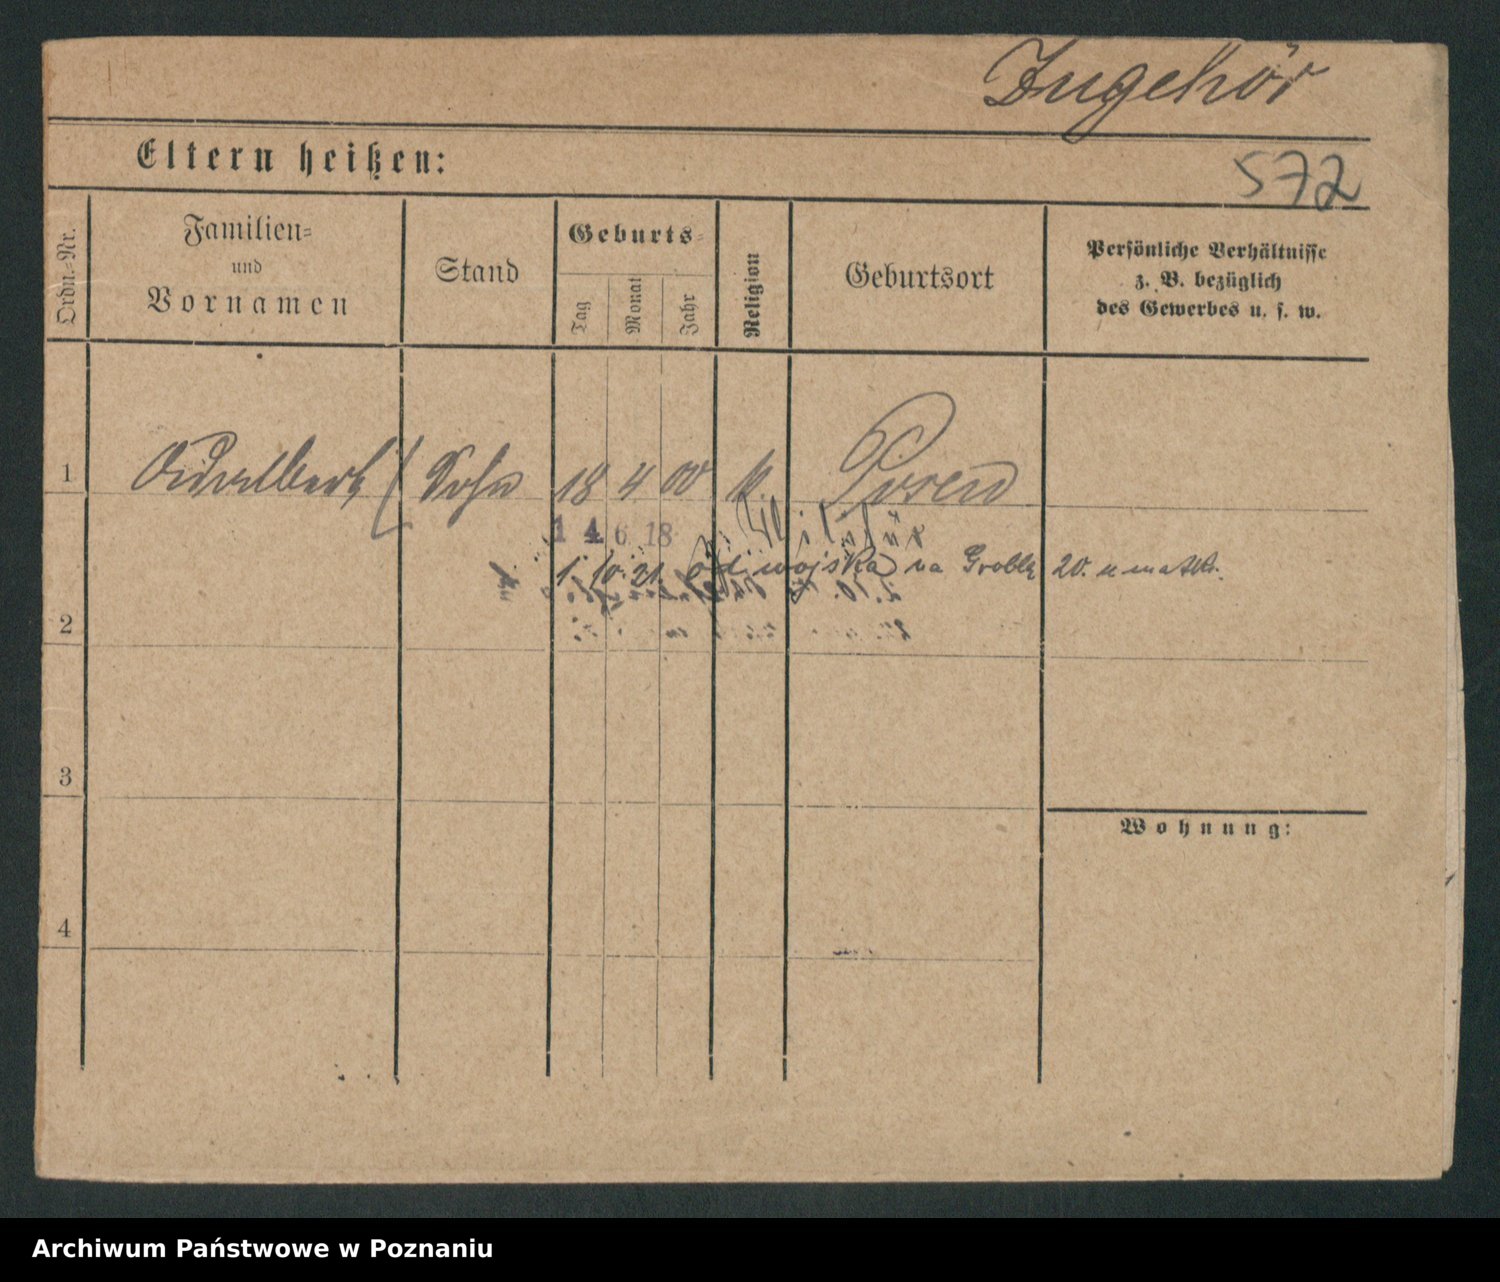 Zugehör
Eltern heißen:
572
Ordn.-Nr.
Familien-
und
Vornamen
Stand
Geburts-
Tag
Monat
Jahr
Religion
Geburtsort
Persönliche Verhältnisse
z. B. bezüglich
des Gewerbes u. s. w.
1 Adalbert Sohn 18 4 00 k. Posen
14 6 18 Militär
1. 10. 21. od wojska na Groblę 20. u matki.
2
3
Wohnung:
4
Archiwum Państwowe w Poznaniu